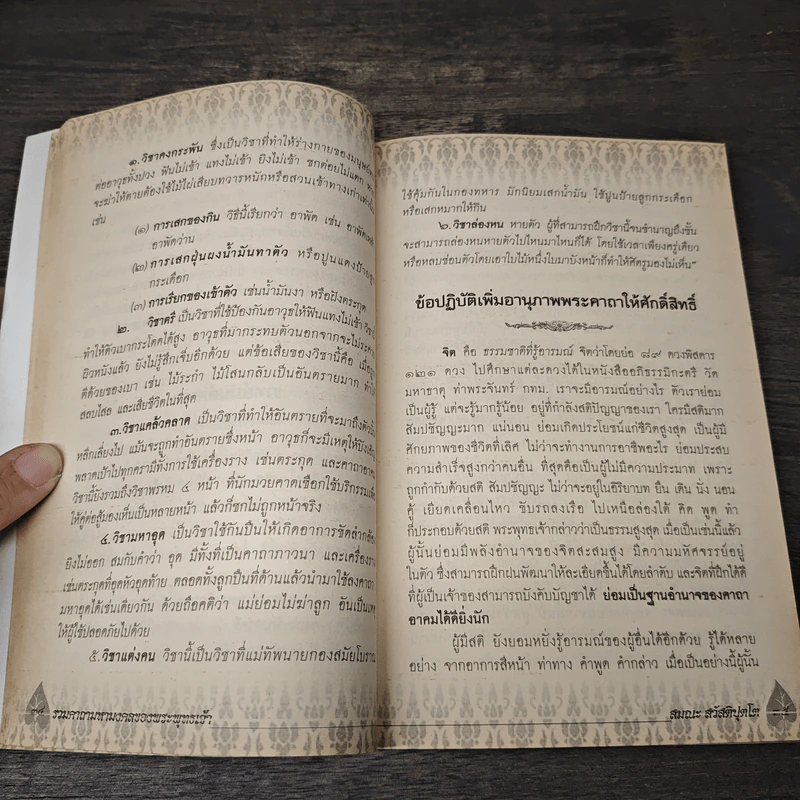 ๑. วิชาคงกระพัน ซึ่งเป็นวิชาที่ทำให้ร่างกายของมนุษย์
ต่ออาวุธทั้งปวง ฟันไม่เข้า แทงไม่เข้า ยิงไม่เข้า ชกต่อยไม่แตก
จะฆ่าให้ตายต้องใช้ไม้ไผ่เสียบทวารหนักหรือสวนเข้าทางเก่า
เช่น
(๑) การเสกของกิน วิธีนี้เรียกว่า อาพัด เช่น อาพัด
อาพัดว่าน
(๒) การเสกฝุ่นผงน้ำมันทาตัว หรือปูนแดงป้าย
กระเดือก
(๓) การเรียกของเข้าตัว เช่นน้ำมันงา หรือฝังตะกรุด
๒. วิชาตรี เป็นวิชาที่ใช้ป้องกันอาวุธให้ฟันแทงไม่เข้า
ทำให้ตัวเบากระโดดได้สูง อาวุธที่มากระทบตัวนอกจากจะไม่
ผิวหนังแล้ว ยังไม่รู้สึกเจ็บอีกด้วย แต่ข้อเสียของวิชานี้คือ
ตีด้วยของเบา เช่น ไม้ระกำ ไม้โสนกลับเป็นอันตรายมาก
สลบไสล และเสียชีวิตในที่สุด
๓. วิชาแคล้วคลาด เป็นวิชาที่ทำให้อันตรายที่จะมาถึงตัว
หลีกเลี่ยงไป แม้นจะถูกทำอันตรายซึ่งหน้า อาวุธก็จะมีเหตุให้
พลาดเป้าไปทุกครามีทั้งการใช้เครื่องราง เช่นตะกรุด และคาถา
วิชานี้ยังรวมถึงวิชาพรหม ๔ หน้า ที่นักมวยคาดเชือกใช้บริกรรม
ให้คู่ต่อสู้มองเห็นเป็นหลายหน้า แล้วก็ชกไม่ถูกหน้าจริง
๔. วิชามหาอุด เป็นวิชาใช้กันปืนให้เกิดอาการขัดลำกล้อง
ยิงไม่ออก สมกับคำว่า อุด มีทั้งที่เป็นคาถาภาวนา และเครื่องราง
เช่นตะกรุดที่อุดหัวอุดท้าย ตลอดทั้งลูกปืนที่ด้านแล้วนำมาใช้ลงคาถา
มหาอุดได้เช่นเดียวกัน ด้วยถือคติว่า แม่ย่อมไม่ฆ่าลูก อันเป็น
ให้ผู้ใช้ปลอดภัยไปด้วย
๕. วิชาแต่งคน วิชานี้เป็นวิชาที่แม่ทัพนายกองสมัยโบราณ
๓๔ รวมคาถามหามงคลของพระพุทธเจ้า
ใช้คุ้มกันในกองทหาร มักนิยมเสกน้ำมัน ใช้ปูนป้ายลูกกระเดือก
หรือเสกหมากให้กิน
๖. วิชาล่องหน หายตัว ผู้ที่สามารถฝึกวิชานี้จนชำนาญถึงขั้น
จะสามารถล่องหนหายตัวไปไหนมาไหนก็ได้ โดยใช้เวลาเพียงครู่เดียว
หรือหลบซ่อนตัวโดยเอาใบไม้หนึ่งใบมาบังหน้าก็ทำให้ศัตรูมองไม่เห็น"
ข้อปฏิบัติเพิ่มอานุภาพพระคาถาให้ศักดิ์สิทธิ์
จิต คือ ธรรมชาติที่รู้อารมณ์ จิตว่าโดยย่อ ๘๙ ดวงพิสดาร
๑๒๑ ดวง ไปศึกษาแต่ละดวงได้ในหนังสืออภิธรรมิกะตรี วัด
มหาธาตุ ท่าพระจันทร์ กทม. เราจะมีอารมณ์อย่างไร ตัวเราย่อม
เป็นผู้รู้ แต่จะรู้มากรู้น้อย อยู่ที่กำลังสติปัญญาของเรา ใครมีสติมาก
สัมปชัญญะมาก แน่นอน ย่อมเกิดประโยชน์แก่ชีวิตสูงสุด เป็นผู้มี
ศักยภาพของชีวิตที่เลิศ ไม่ว่าจะทำงานการอาชีพอะไร ย่อมประสบ
ความสำเร็จสูงกว่าคนอื่น ที่สุดคือเป็นผู้ไม่มีความประมาท เพราะ
ถูกกำกับด้วยสติ สัมปชัญญะ ไม่ว่าจะอยู่ในอิริยาบท ยืน เดิน นั่ง นอน
คู้ เหยียดเคลื่อนไหว ขับรถลงเรือ ไปเหนือล่องใต้ คิด พูด ทำ
ก็ประกอบด้วยสติ พระพุทธเจ้ากล่าวว่าเป็นธรรมสูงสุด เมื่อเป็นเช่นนี้แล้ว
ผู้นั้นย่อมมีพลังอำนาจของจิตสะสมสูง มีความมหัศจรรย์อยู่
ในตัว ซึ่งสามารถฝึกฝนพัฒนาให้ละเอียดขึ้นได้โดยลำดับ และจิตที่ฝึกได้ดี
ที่ผู้เป็นเจ้าของสามารถบังคับบัญชาได้ ย่อมเป็นฐานอำนาจของคาถา
อาคมได้ดียิ่งนัก
ผู้มีสติ ยังยอมหยั่งรู้อารมณ์ของผู้อื่นได้อีกด้วย รู้ได้หลาย
อย่าง จากอาการสีหน้า ท่าทาง คำพูด คำกล่าว เมื่อเป็นอย่างนี้ผู้นั้น
สมณะ สวัสดิปุตโต